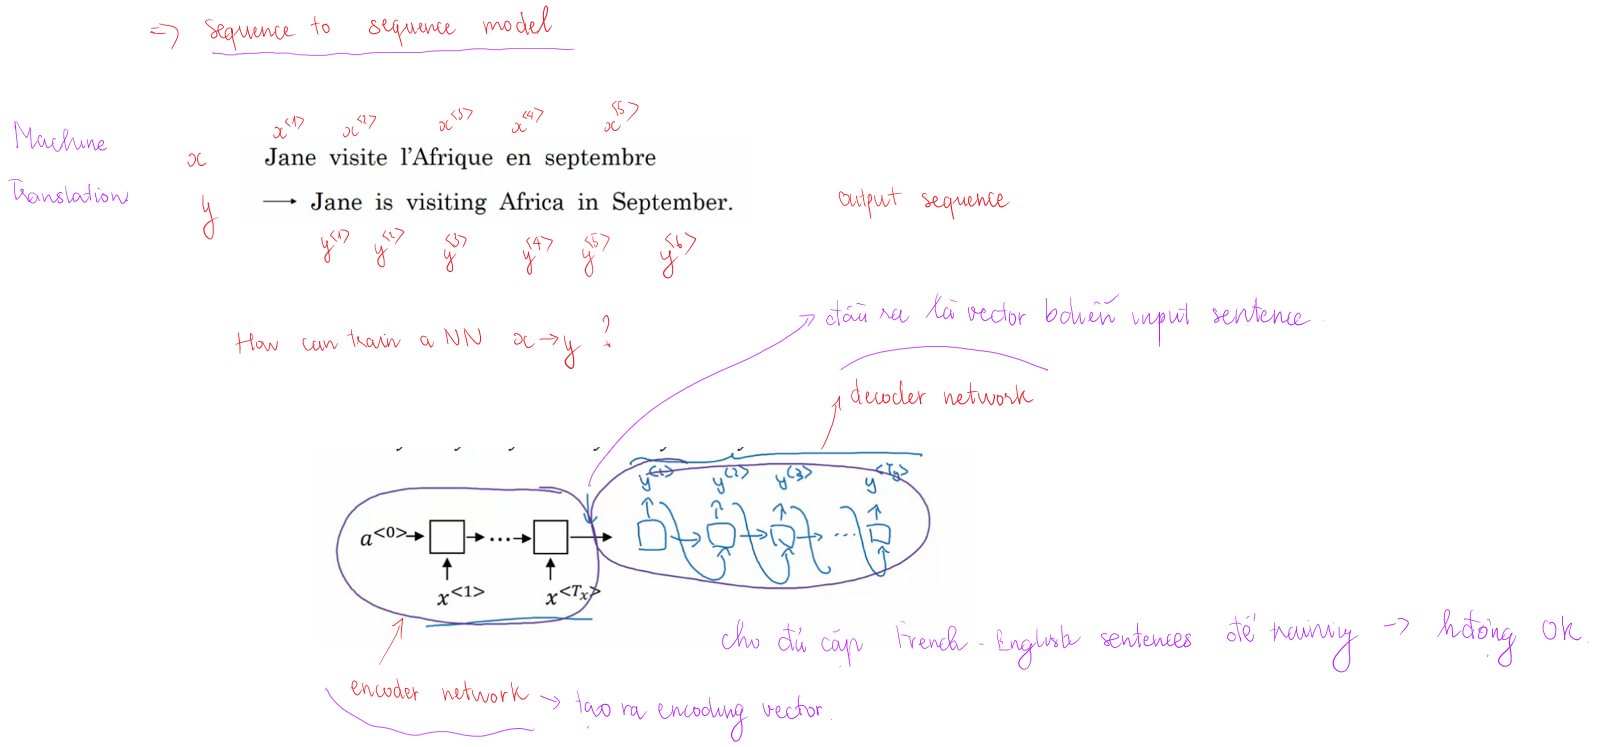 => sequence to sequence model
x<1> x<2> x<3> x<4> x<5>
Machine Translation
x Jane visite l'Afrique en septembre
y → Jane is visiting Africa in September.
output sequence
y<1> y<2> y<3> y<4> y<5> y<6>
How can train a NN x→y ?
đầu ra là vector bdiễn input sentence
decoder network
y<1> y<2> y<3> y<Ty>
a<0> ... ...
x<1> x<Tx>
cho đủ cặp French - English sentences để training → hđộng OK.
encoder network → tạo ra encoding vector.